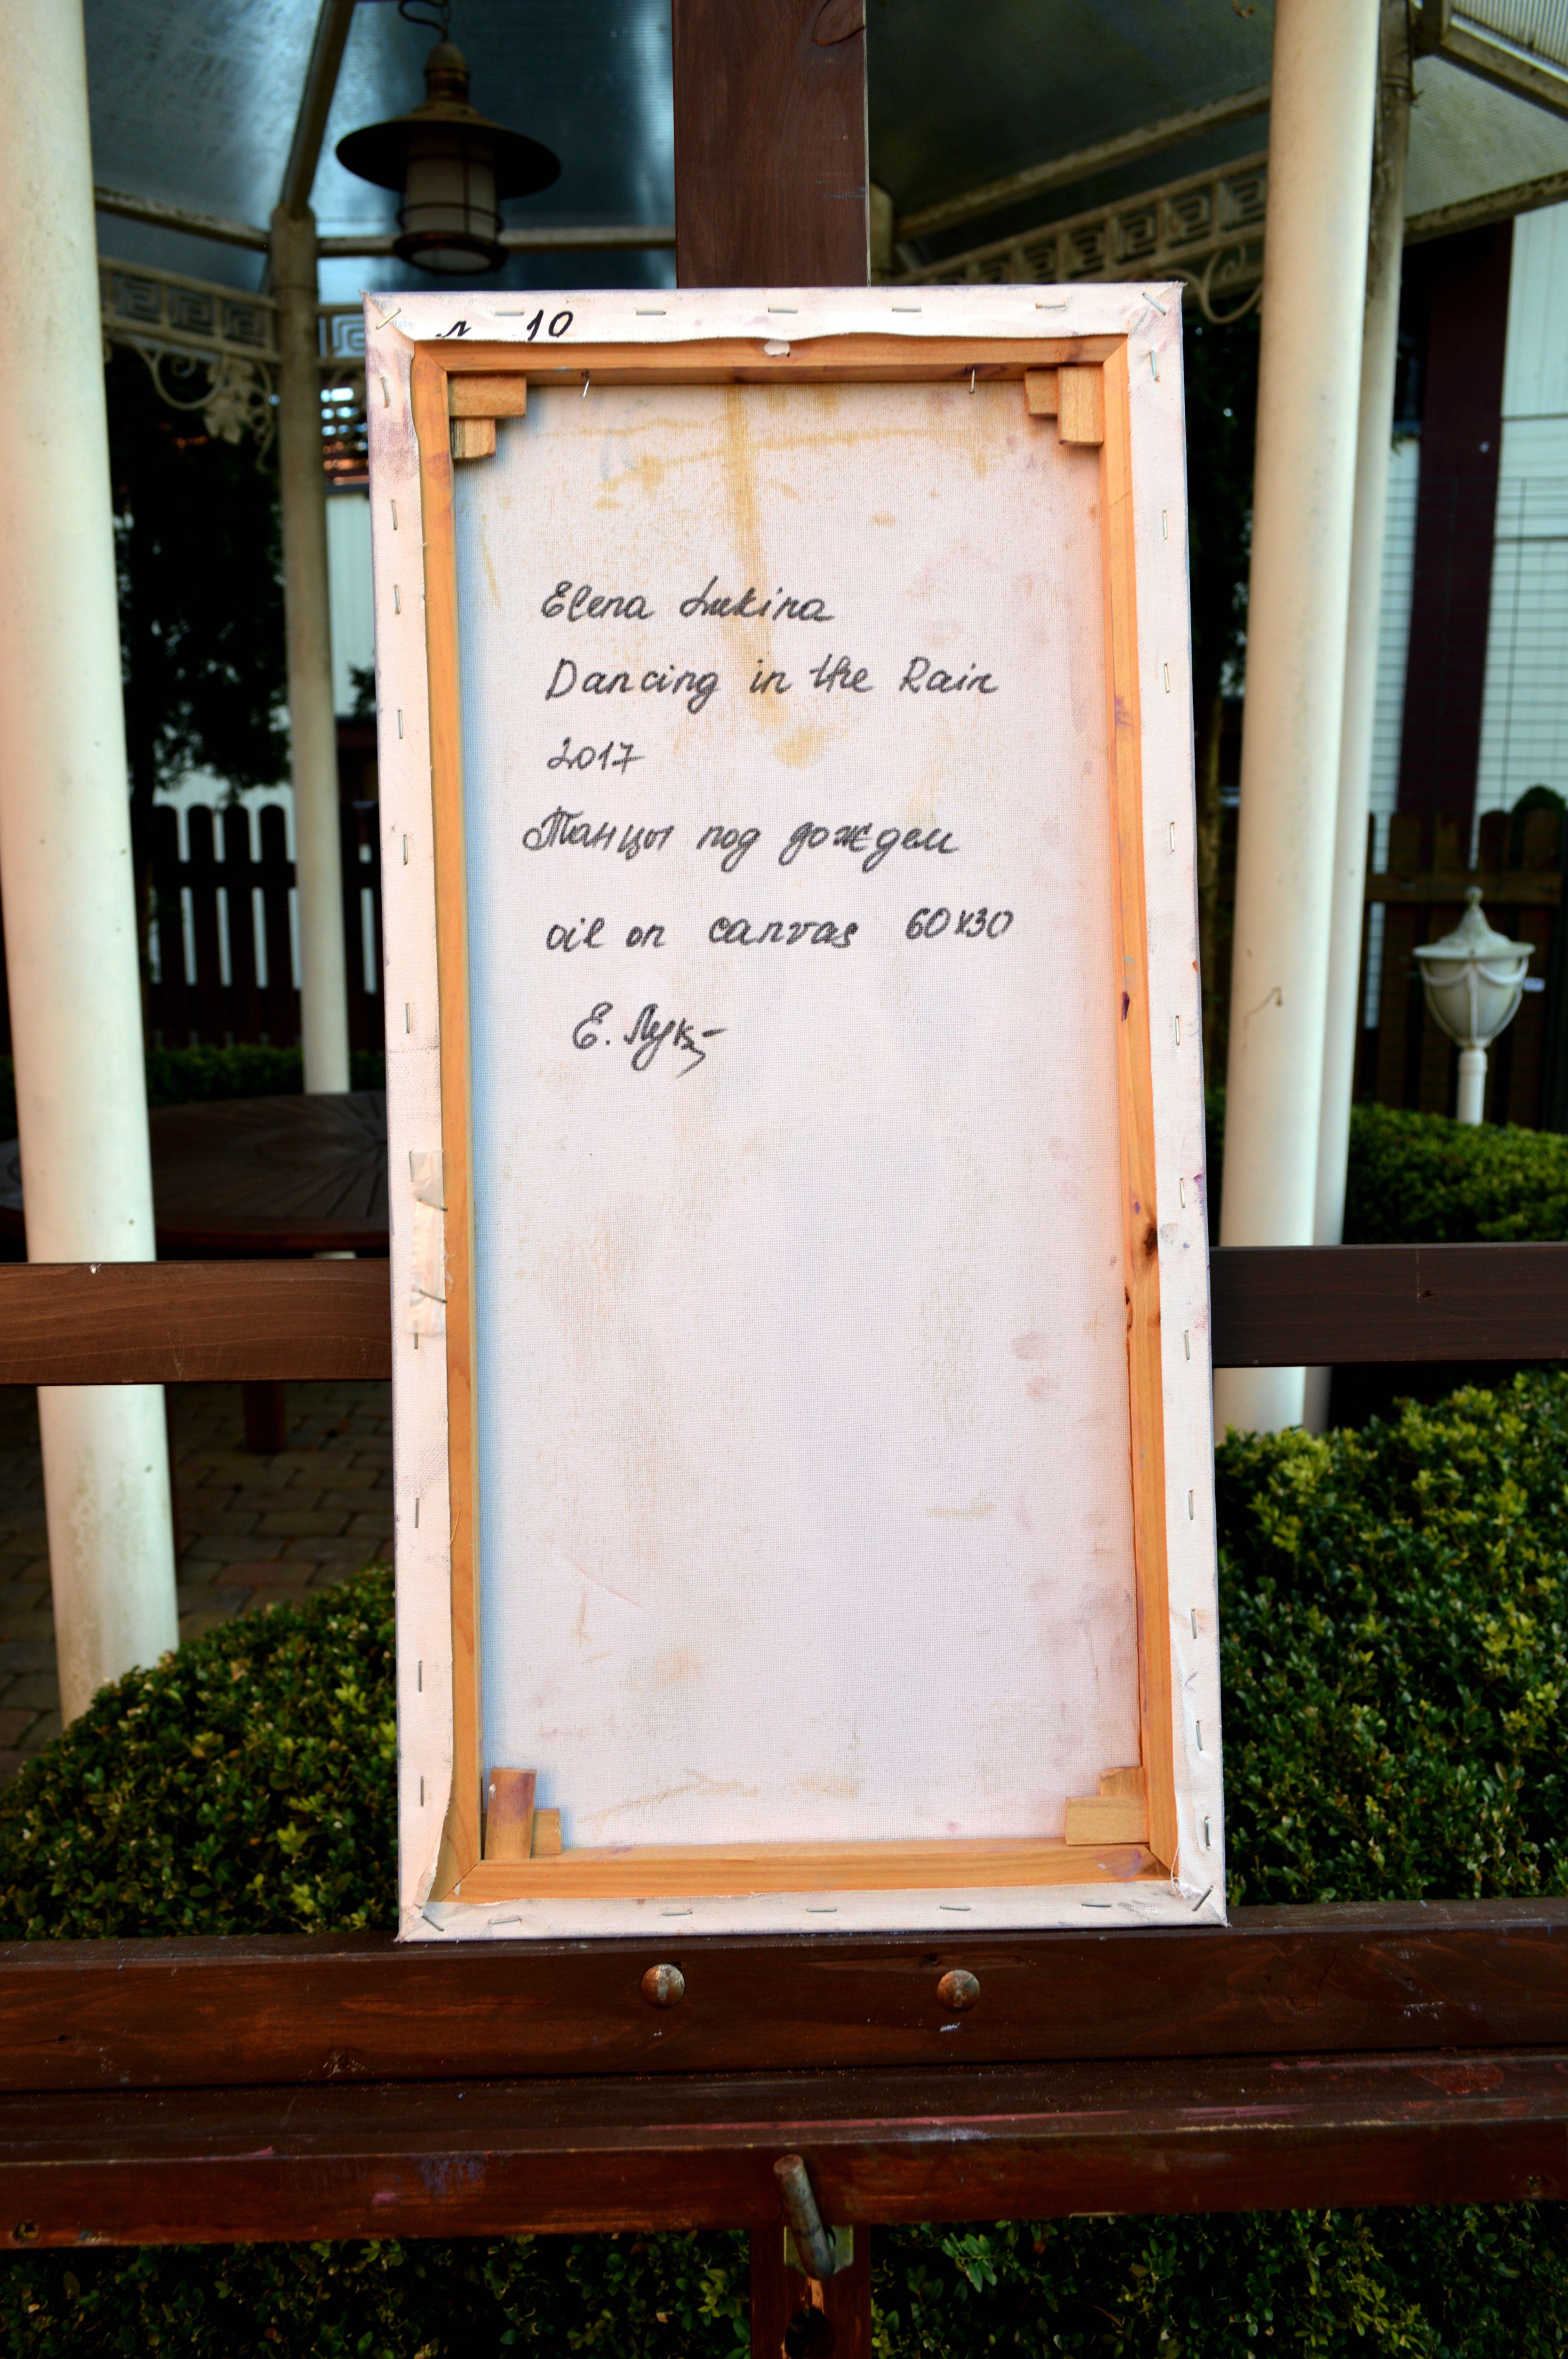 10
Elena Lukina
Dancing in the Rain
2017
Танцы под дождем
oil on canvas 60x30
Е. Лук